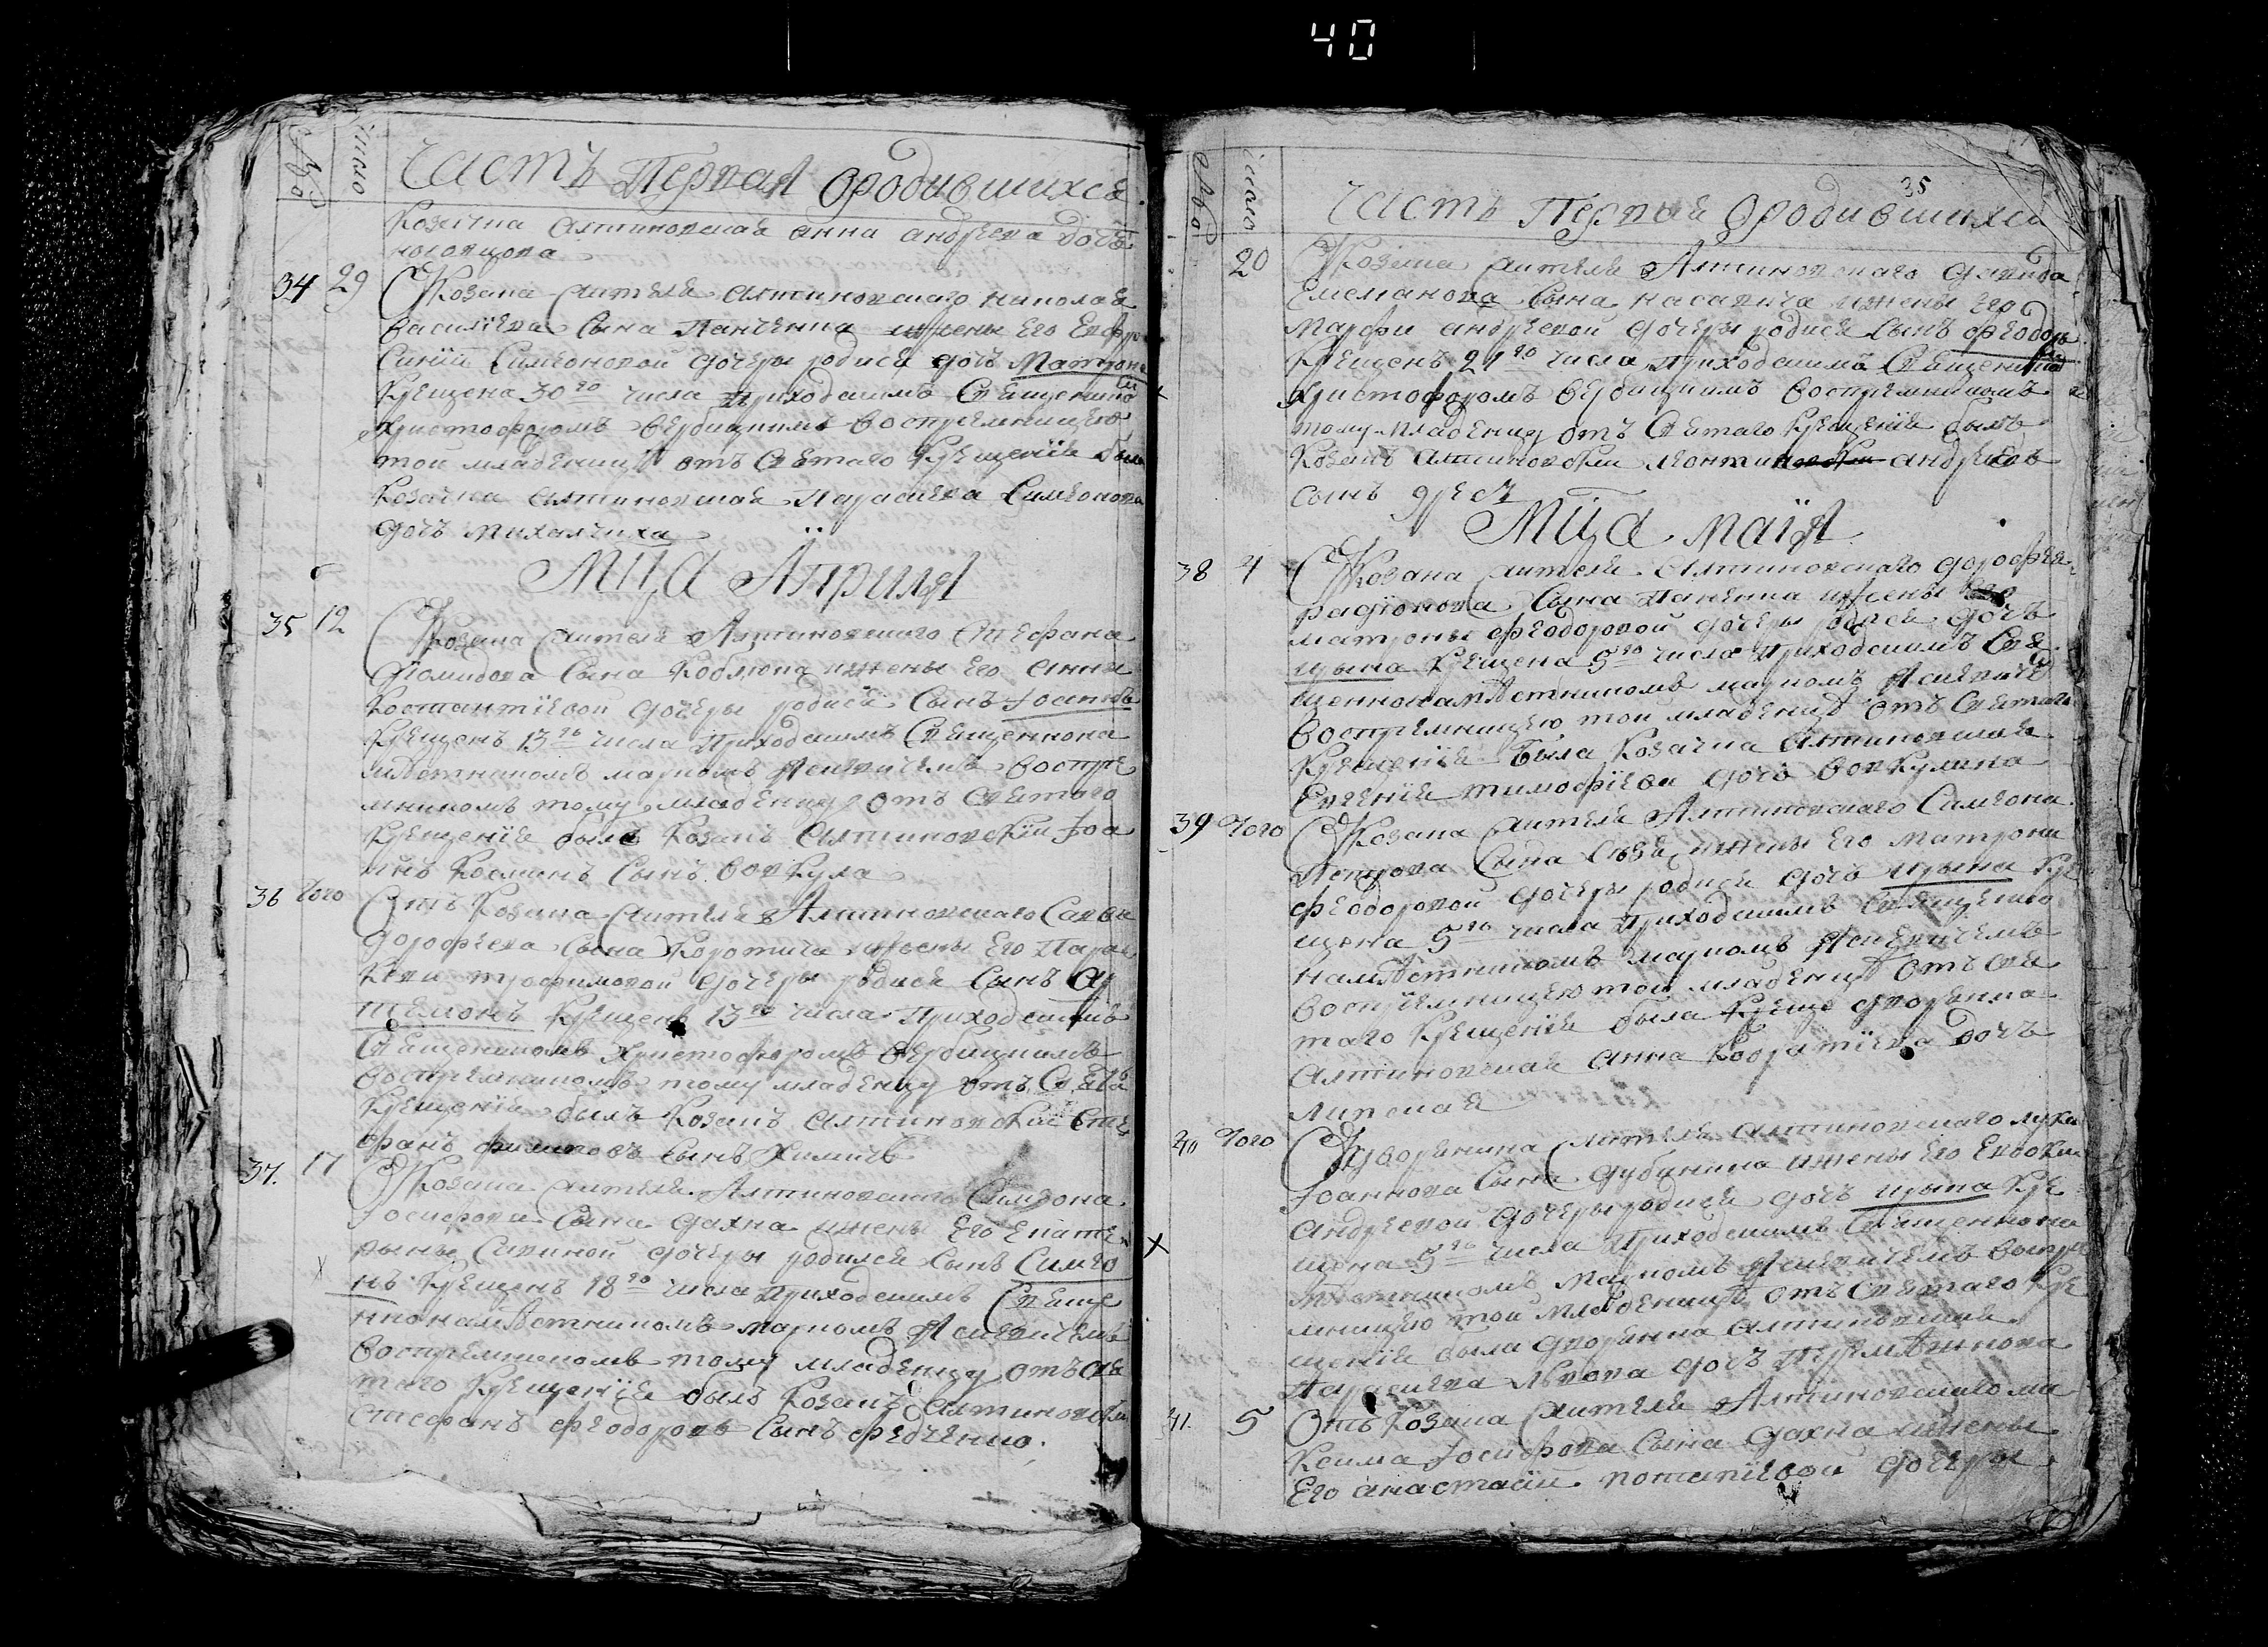 40
№
число
Часть Первая ородившихся
козачка алтиновская анна андреева дочь
34 29 Указака жителя алтиновскаго николая
василиева сына Панченка ижены его Евфро
синии Симеоновой дочеры родися дочь Матрона
крещена 30го числа приходскимъ Священико
христофоромъ вербицкимъ восприемницею
той младеницѣ отъ святаго крещенїя была
козачка алтиновская Параскева Симеонова
дочь михалчиха
Мца Априля
35 12 Указака жителя Алтиновскаго Стефана
сына кобзюка ижены его анны
костантиевой дочеры родися сынъ Іоаннъ
крещенъ 13го числа приходскимъ Священнона
мѣстникомъ маркомъ Ясневичемъ воспрїе
мникомъ тому младенцу отъ святаго
крещенїя былъ козакъ алтиновскїи Іоа
ннъ косминъ сынъ вовкула
36 того Отъ козака жителя Алтиновскаго Саввы
дорофеева сына коротича ижены его Парас
кеви трофимовой дочеры родися сынъ Ар
темонъ крещенъ 13го числа приходскимъ
Священикомъ христофоромъ вербицкимъ
восприемникомъ тому младенцу отъ Свята
крещенїя былъ козакъ алтиновскїи Сте
фанъ филиповъ сынъ Химичъ
37. 17 Указака жителя Алтиновскаго Симеона
Іосифова сына дахна ижены его Екате
рыны Савиной дочеры родился сынъ Симео
нъ крещенъ 18го числа приходскимъ Свяще
ннонамѣстникомъ маркомъ Ясневичемъ
восприемникомъ тому младенцу отъ свя
таго крещенїя былъ козакъ алтиновскїи
стефанъ феодоровъ сынъ федченко.
№
число
35
Часть Первая ородившихся
20 Указака жителя Алтиновскаго давида
Емелианова сына насавича ижены его
Марфи андреевой дочеры родися сынъ феодоръ
крещенъ 21го числа приходскимъ Священико
христофоромъ вербицкимъ восприемникомъ
тому младенцу отъ Святаго крещенїя былъ
козакъ алтиновскїи андреевъ
сынъ
Мца маїя
38 4 Указака жителя Алтиновскаго дорофея
радїонова сына Панченка ижены его
матроны феодоровой дочеры родися дочь
ирына крещена 5го числа приходскимъ Свя
щеннонамѣстникомъ маркомъ Ясневичем
восприемницею той младеницѣ отъ Святаго
крещенїя была козачка алтиновская
Евгенїя тимофїева дочь вовкулина
39 того Указака жителя Алтиновскаго Симеона
Петрова сына ижены его матроны
феодоровой дочеры родися дочь ирына кре
щена 5го числа приходскимъ Священно
намѣстникомъ маркомъ Ясневичемъ
восприемницею той младеницѣ отъ свя
таго крещенїя была креще дворянка
алтиновская анна кодратїева дочь
Липская
40 того Удворянина жителя алтиновскаго луки
Іоаннова сына дубинина ижены его Евдокеи
андреевой дочеры родися дочь ирына кре
щена 5го числа приходскимъ Священнона
мѣстникомъ маркомъ Ясневичемъ воспрїе
мницею той младеницѣ отъ Святаго кре
щенїя была дворянка алтиновская
Параскева Лвова дочь
41. 5 Отъ козака жителя Алтиновскаго ма
ксима Іосифова сына дахна ижены
его анастасїи потапїевой дочеры